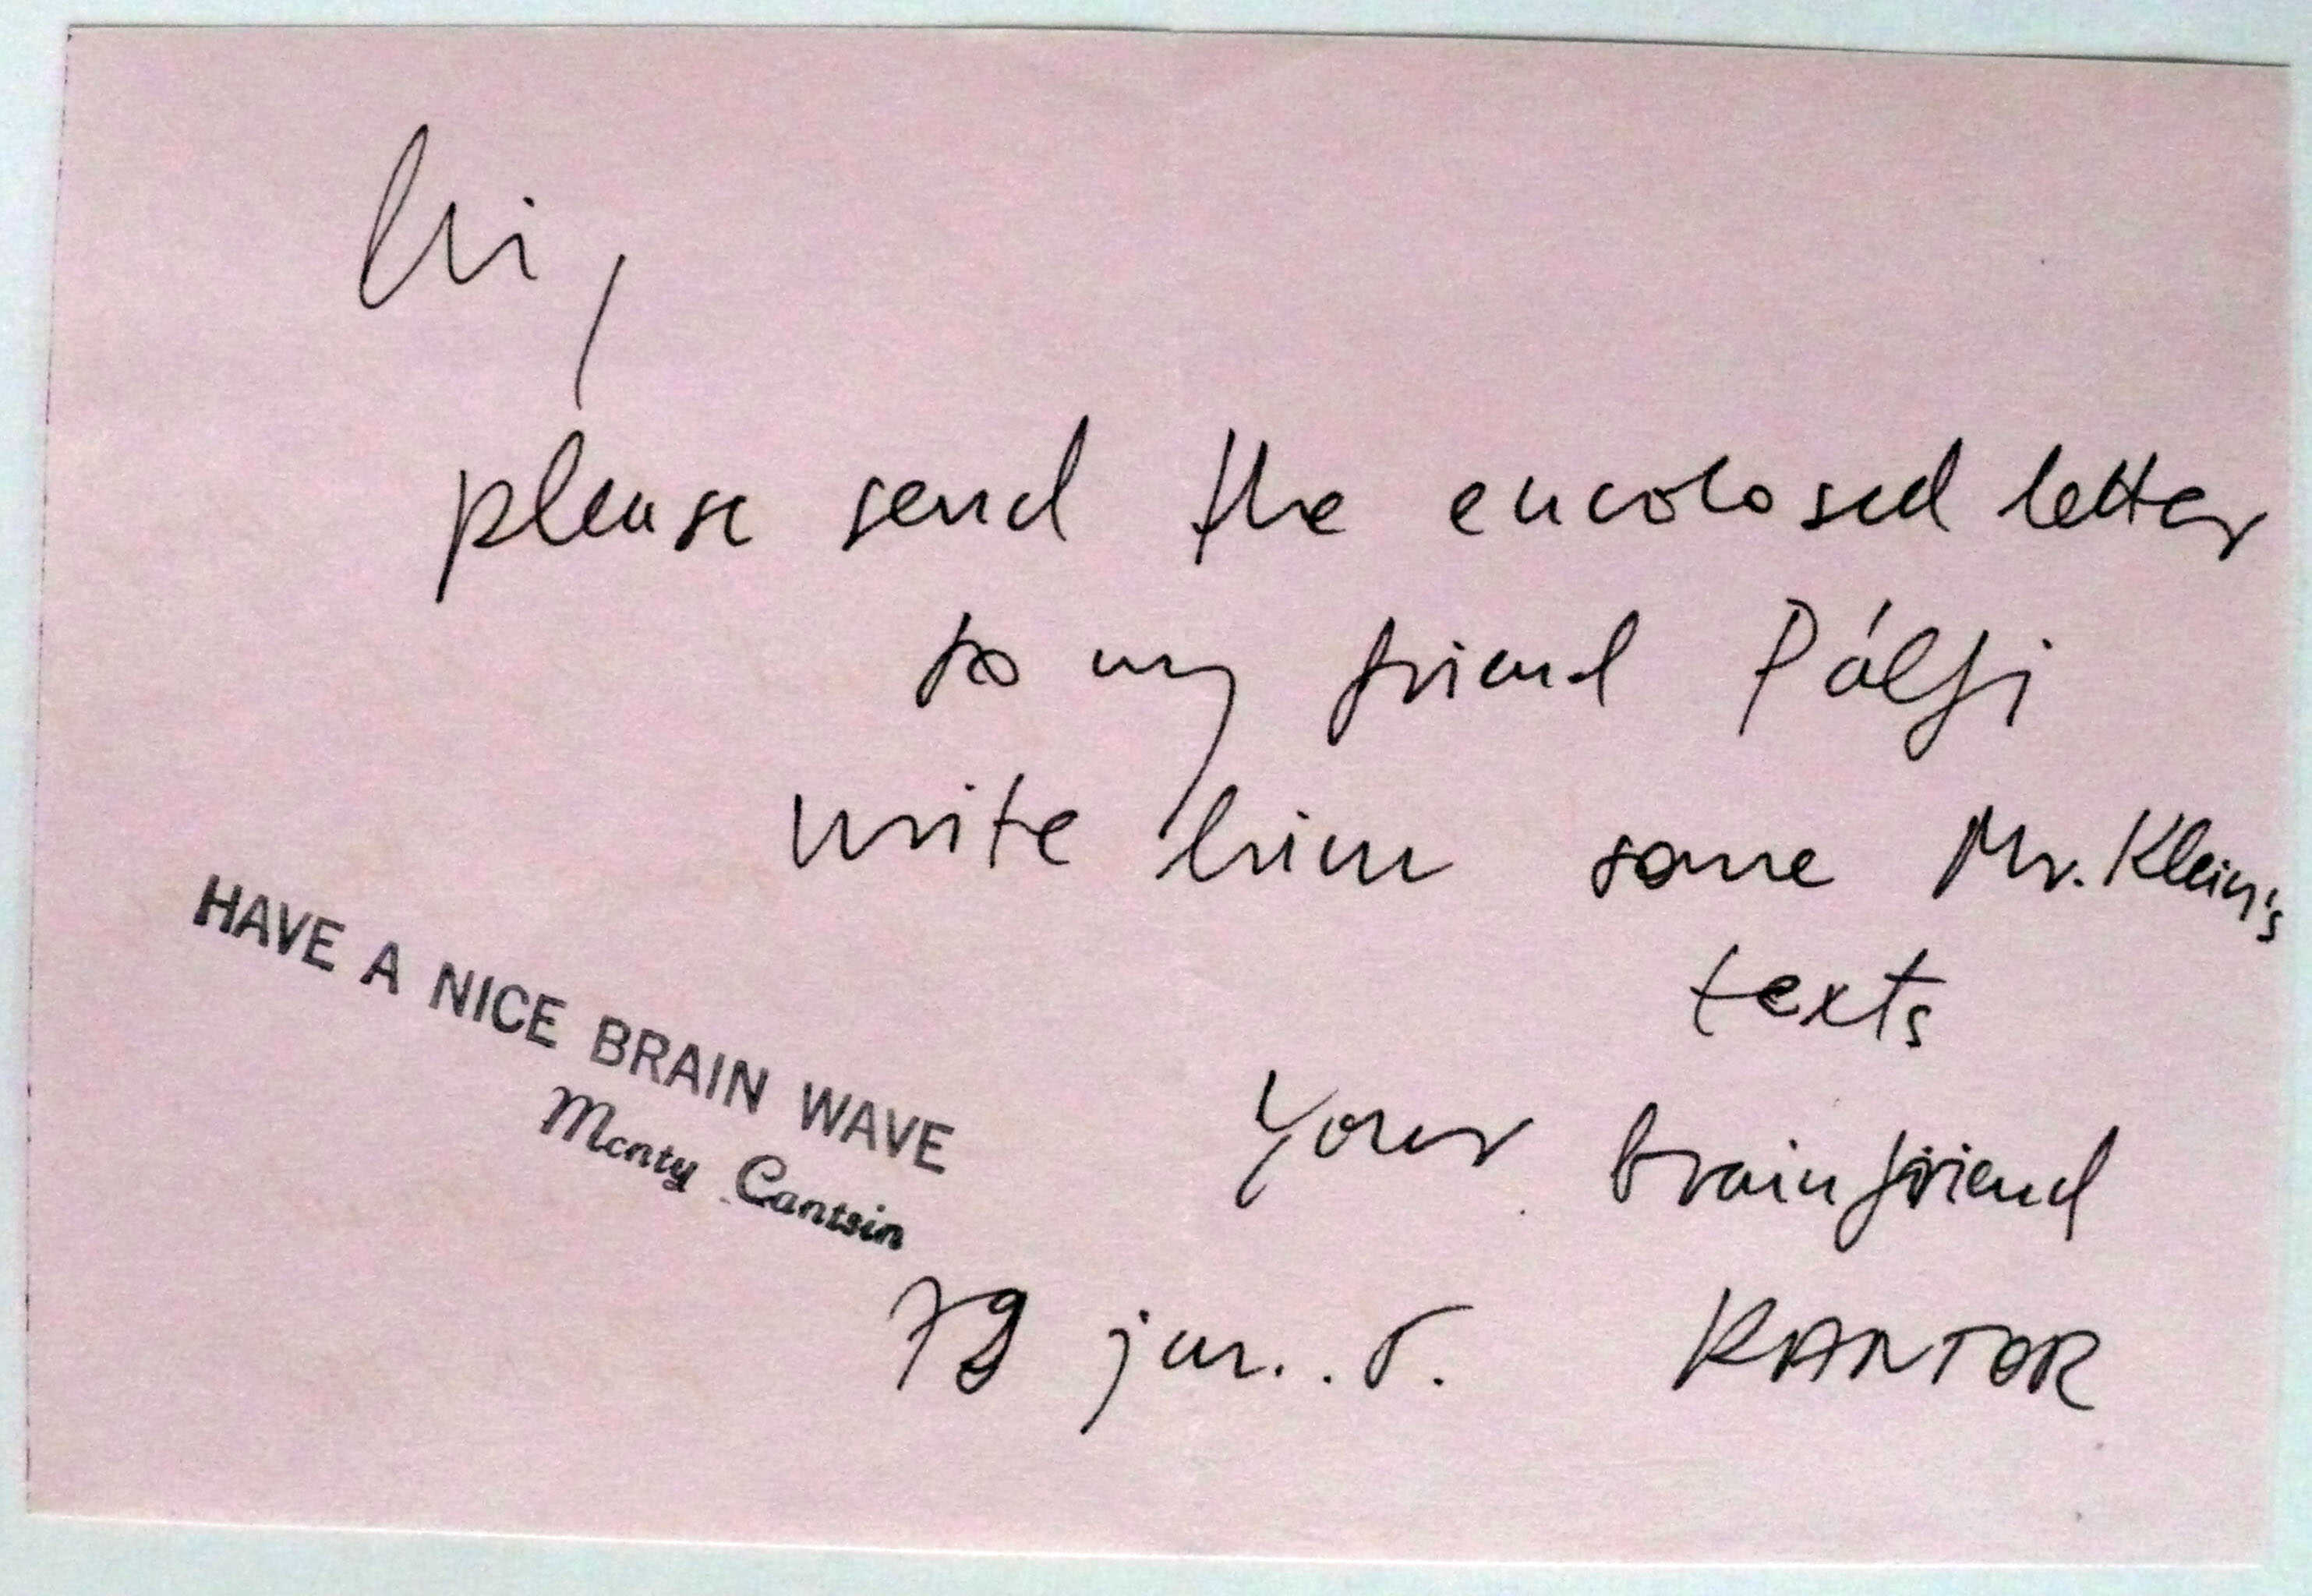 hi,
please send the encolosed letter
to my friend Pálfi
write him some Mr. Klein's
texts
HAVE A NICE BRAIN WAVE
Monty Cantsin
Your brainfriend
79 jun. . 5. KANTOR